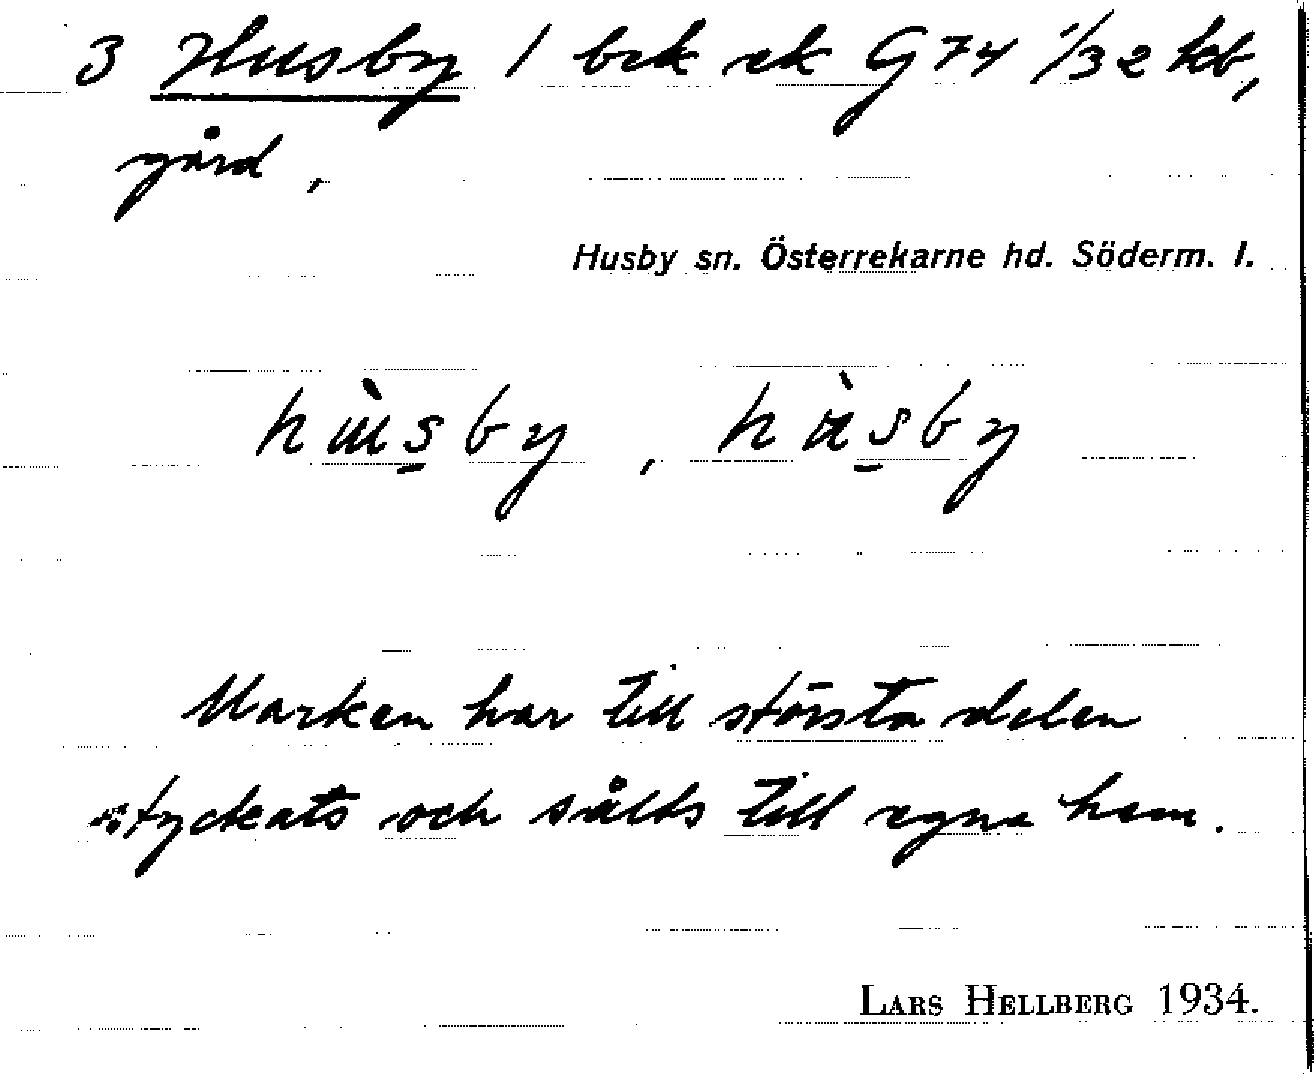 3 Husby 1 bek ek G74 1/32 kb,
gård,
Husby sn. Österrekarne hd. Söderm. l.
hùs̱by, hùs̱by
Marken har till största delen
styckats och sålts till egna hem.
LARS HELLBERG 1934.